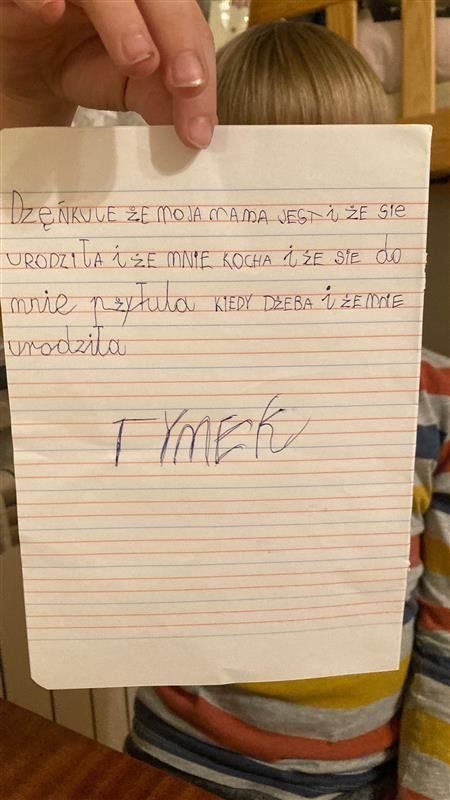 DZĘŃKUJE ŻE MOJA MAMA JEST I ŻE SIE
URODZIŁA I ŻE MNIE KOCHA I ŻE SIE do
mnie przytula KIEDY DŻEBA I ŻE MNIE
urodziła
TYMEK